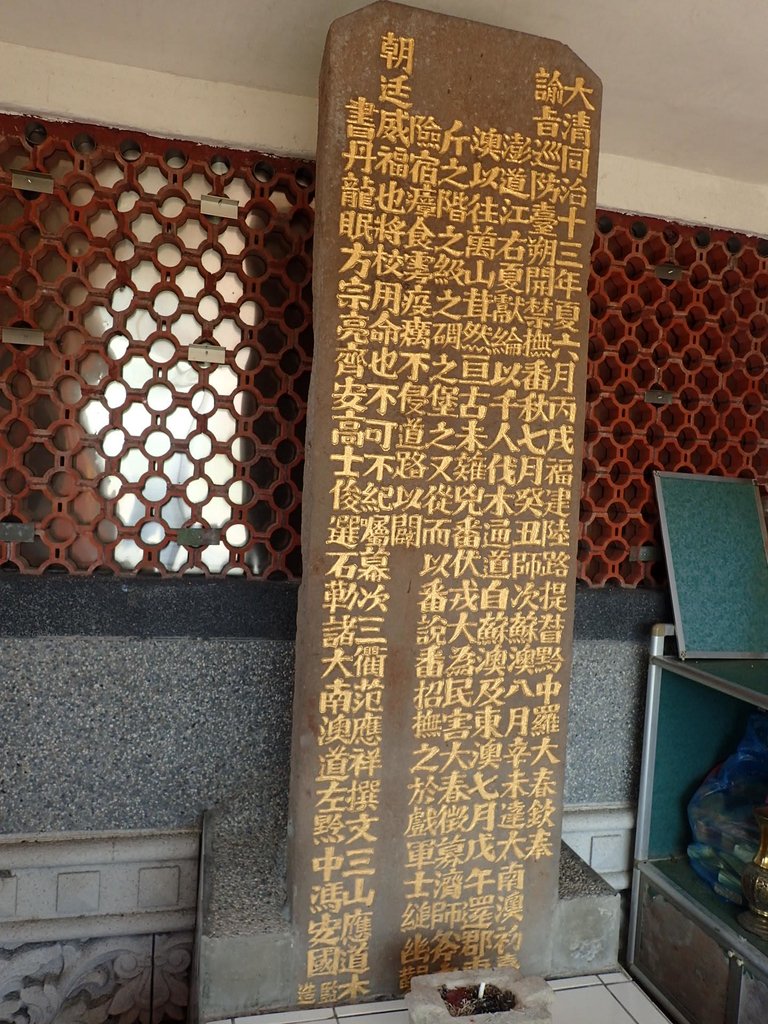 大清同治十三年夏六月丙戌福建陸路提督黔中羅大春欽奉
諭旨巡防臺朔開禁撫番秋七月癸丑師次蘇澳八月辛未達大南澳初
澎道江右夏獻綸以千人伐木通道自蘇澳及東澳七月戊午羅郡
澳以往萬山茸然亘古未薙兇番伏戎大為民害大春徵募濟師
斤之階之級之磵之堡之又從而以番說番招撫之於戲軍士縋幽
險宿瘴食霧疫癘不侵道路以闢
朝廷威福也將校用命也不可不紀屬幕次三衢范應祥撰文三山應道本
書丹龍眠方宗亮齊安高士俊選石勒諸大南澳道左黔中馮安國
監造